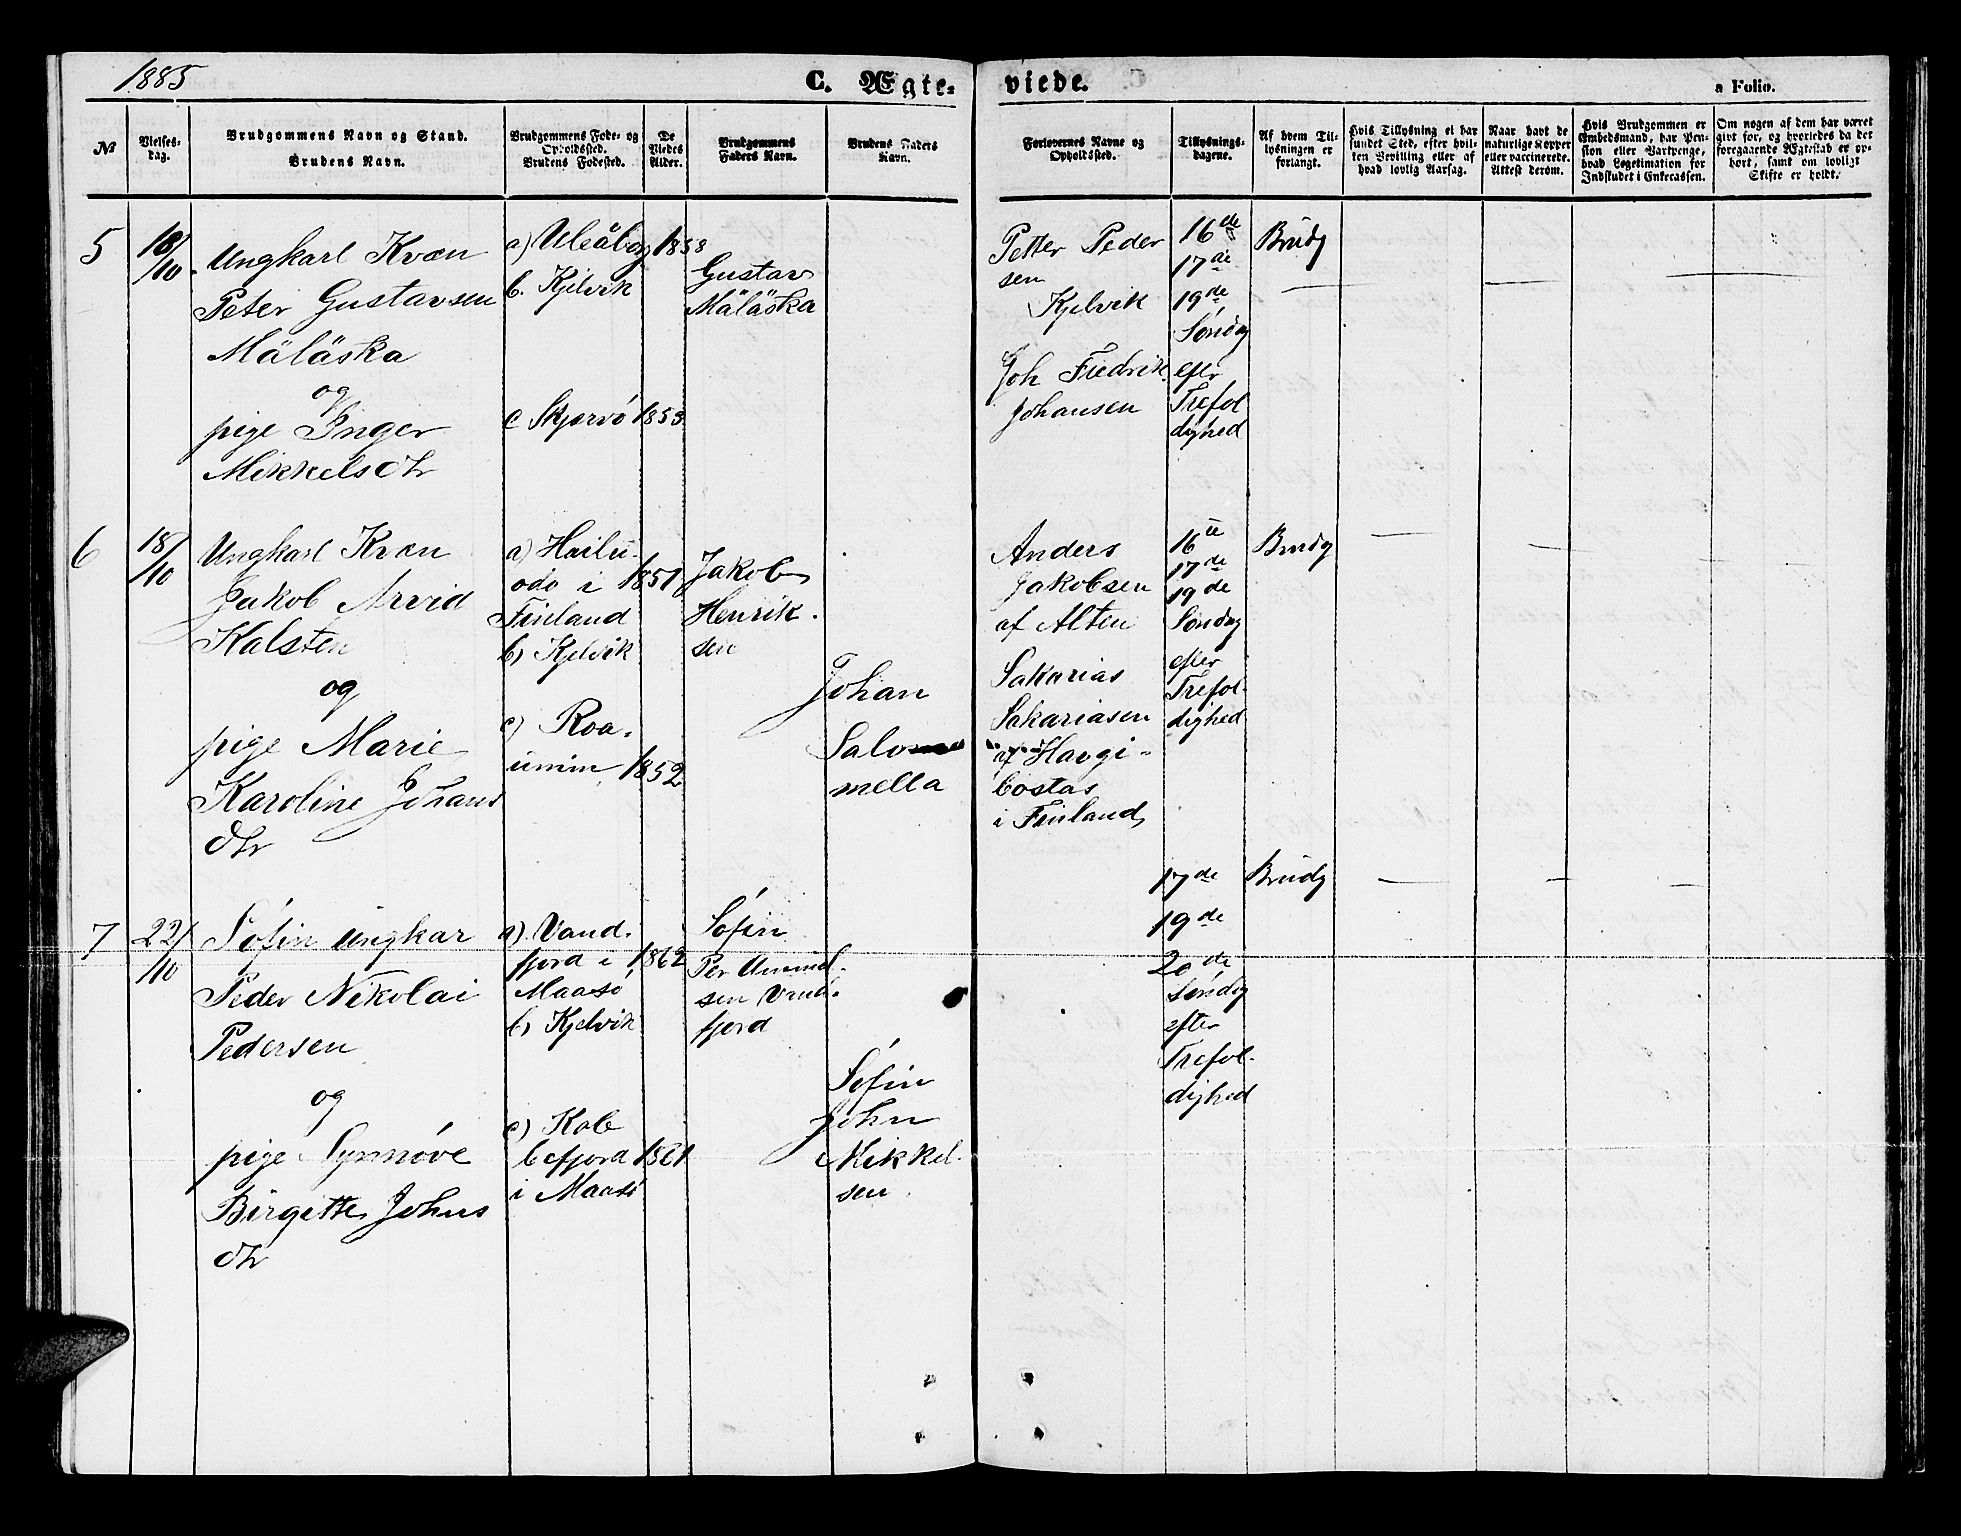 1885
C. Ægte-
viede.
a Folio.
№
Vielses-
dag.
Brudgommens Navn og Stand.
Brudens Navn.
Brudgommens Føde- og
Opholdssted.
Brudens Fødested.
De
Viedes
Alder.
Brudgommens
Faders Navn.
Brudens Faders
Navn.
Forlovernes Navne og
Opholdssted.
Tillysnings-
dagene.
Af hvem Til-
lysningen er
forlangt.
Hvis Tillysning ei har
fundet Sted, efter hvil-
ken Bevilling eller af
hvad lovlig Aarsag.
Naar havt de
naturlige Kopper
eller vaccinerede.
Attest derom.
Hvis Brudgommen er
Embedsmand, har Pen-
sion eller Vartpenge,
hvad Legitimation for
Indskudet i Enkecassen.
Om nogen af dem har været
givt før, og hvorledes da det
foregaaende Ægteskab er op-
hørt, samt om lovligt
Skifte er holdt.
5
18/10
Ungkarl Kvæn
Peter Gustavsen
Mäläska
og
pige Inger
Mikkelsdtr
a) Uleåborg
b. Kjelvik
c Skjervö
1858
1853
Gustav
Mäläska
Petter Peder
sen
Kjelvik
Joh Fredrik
Johansen
16de
17de
19de
Søndag
efter
Trefol
dighed
Brudg
6
18/10
Ungkarl Kvæn
Jakob Arvid
Kalsten
og
pige Marie
Karoline Johans
dtr
a) Hailu-
odo i
Finland
b) Kjelvik
c) Roa-
unim
1851
1852
Jakob
Henrik-
sen
Johan
Salo
mella
Anders
Jakobsen
af Alten
Sakarias
Sakariasen
af Havgi-
bostas
i Finland
16de
17de
19de
Søndag
efter
Trefol-
dighed
Brudg
7
22/10
Søfin ungkar
Peder Nikolai
Pedersen
og
pige Synnøve
Birgitte Johns
dtr
a) Vand-
fjord i
Maasö
b) Kjelvik
c) Kob
befjord
i Maasö
1862
1861
Søfin
Per Ammel-
sen Vand-
fjord
Søfin
John
Mikkel-
sen
17de
19de
20de
Søndag
efter
Trefol-
dighed
Brudg